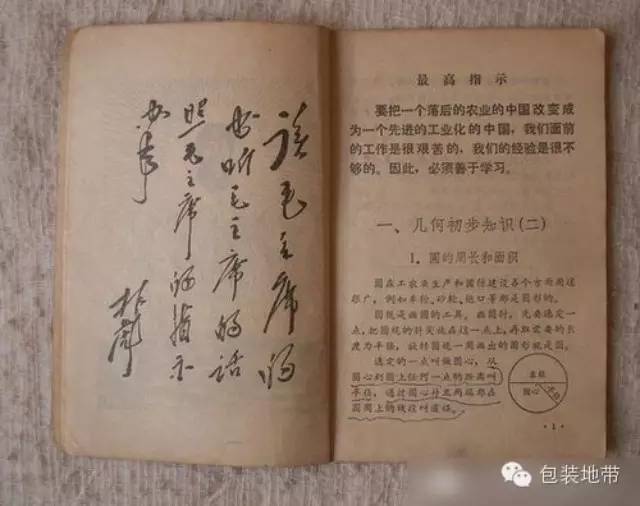 读毛主席的
书听毛主席的话
照毛主席的指示
办事
林彪
最高指示
要把一个落后的农业的中国改变成
为一个先进的工业化的中国，我们面前
的工作是很艰苦的，我们的经验是很不
够的。因此，必须善于学习。
一、几何初步知识(二)
1. 圆的周长和面积
圆在工农业生产和国防建设各个方面用途
很广，例如车轮、砂轮、炮口等都是圆形的。
圆规是画圆的工具。画圆时，先要选定一
点，把圆规的针尖放在这一点上，再取需要的长
度为半径，旋转圆规一周画出的图形就是圆。
选定的一点叫做圆心，从
圆心到圆上任何一点的距离叫
半径，通过圆心并且两端都在
圆周上的线段叫直径。
直径
圆心
半径
·1·
包装地带